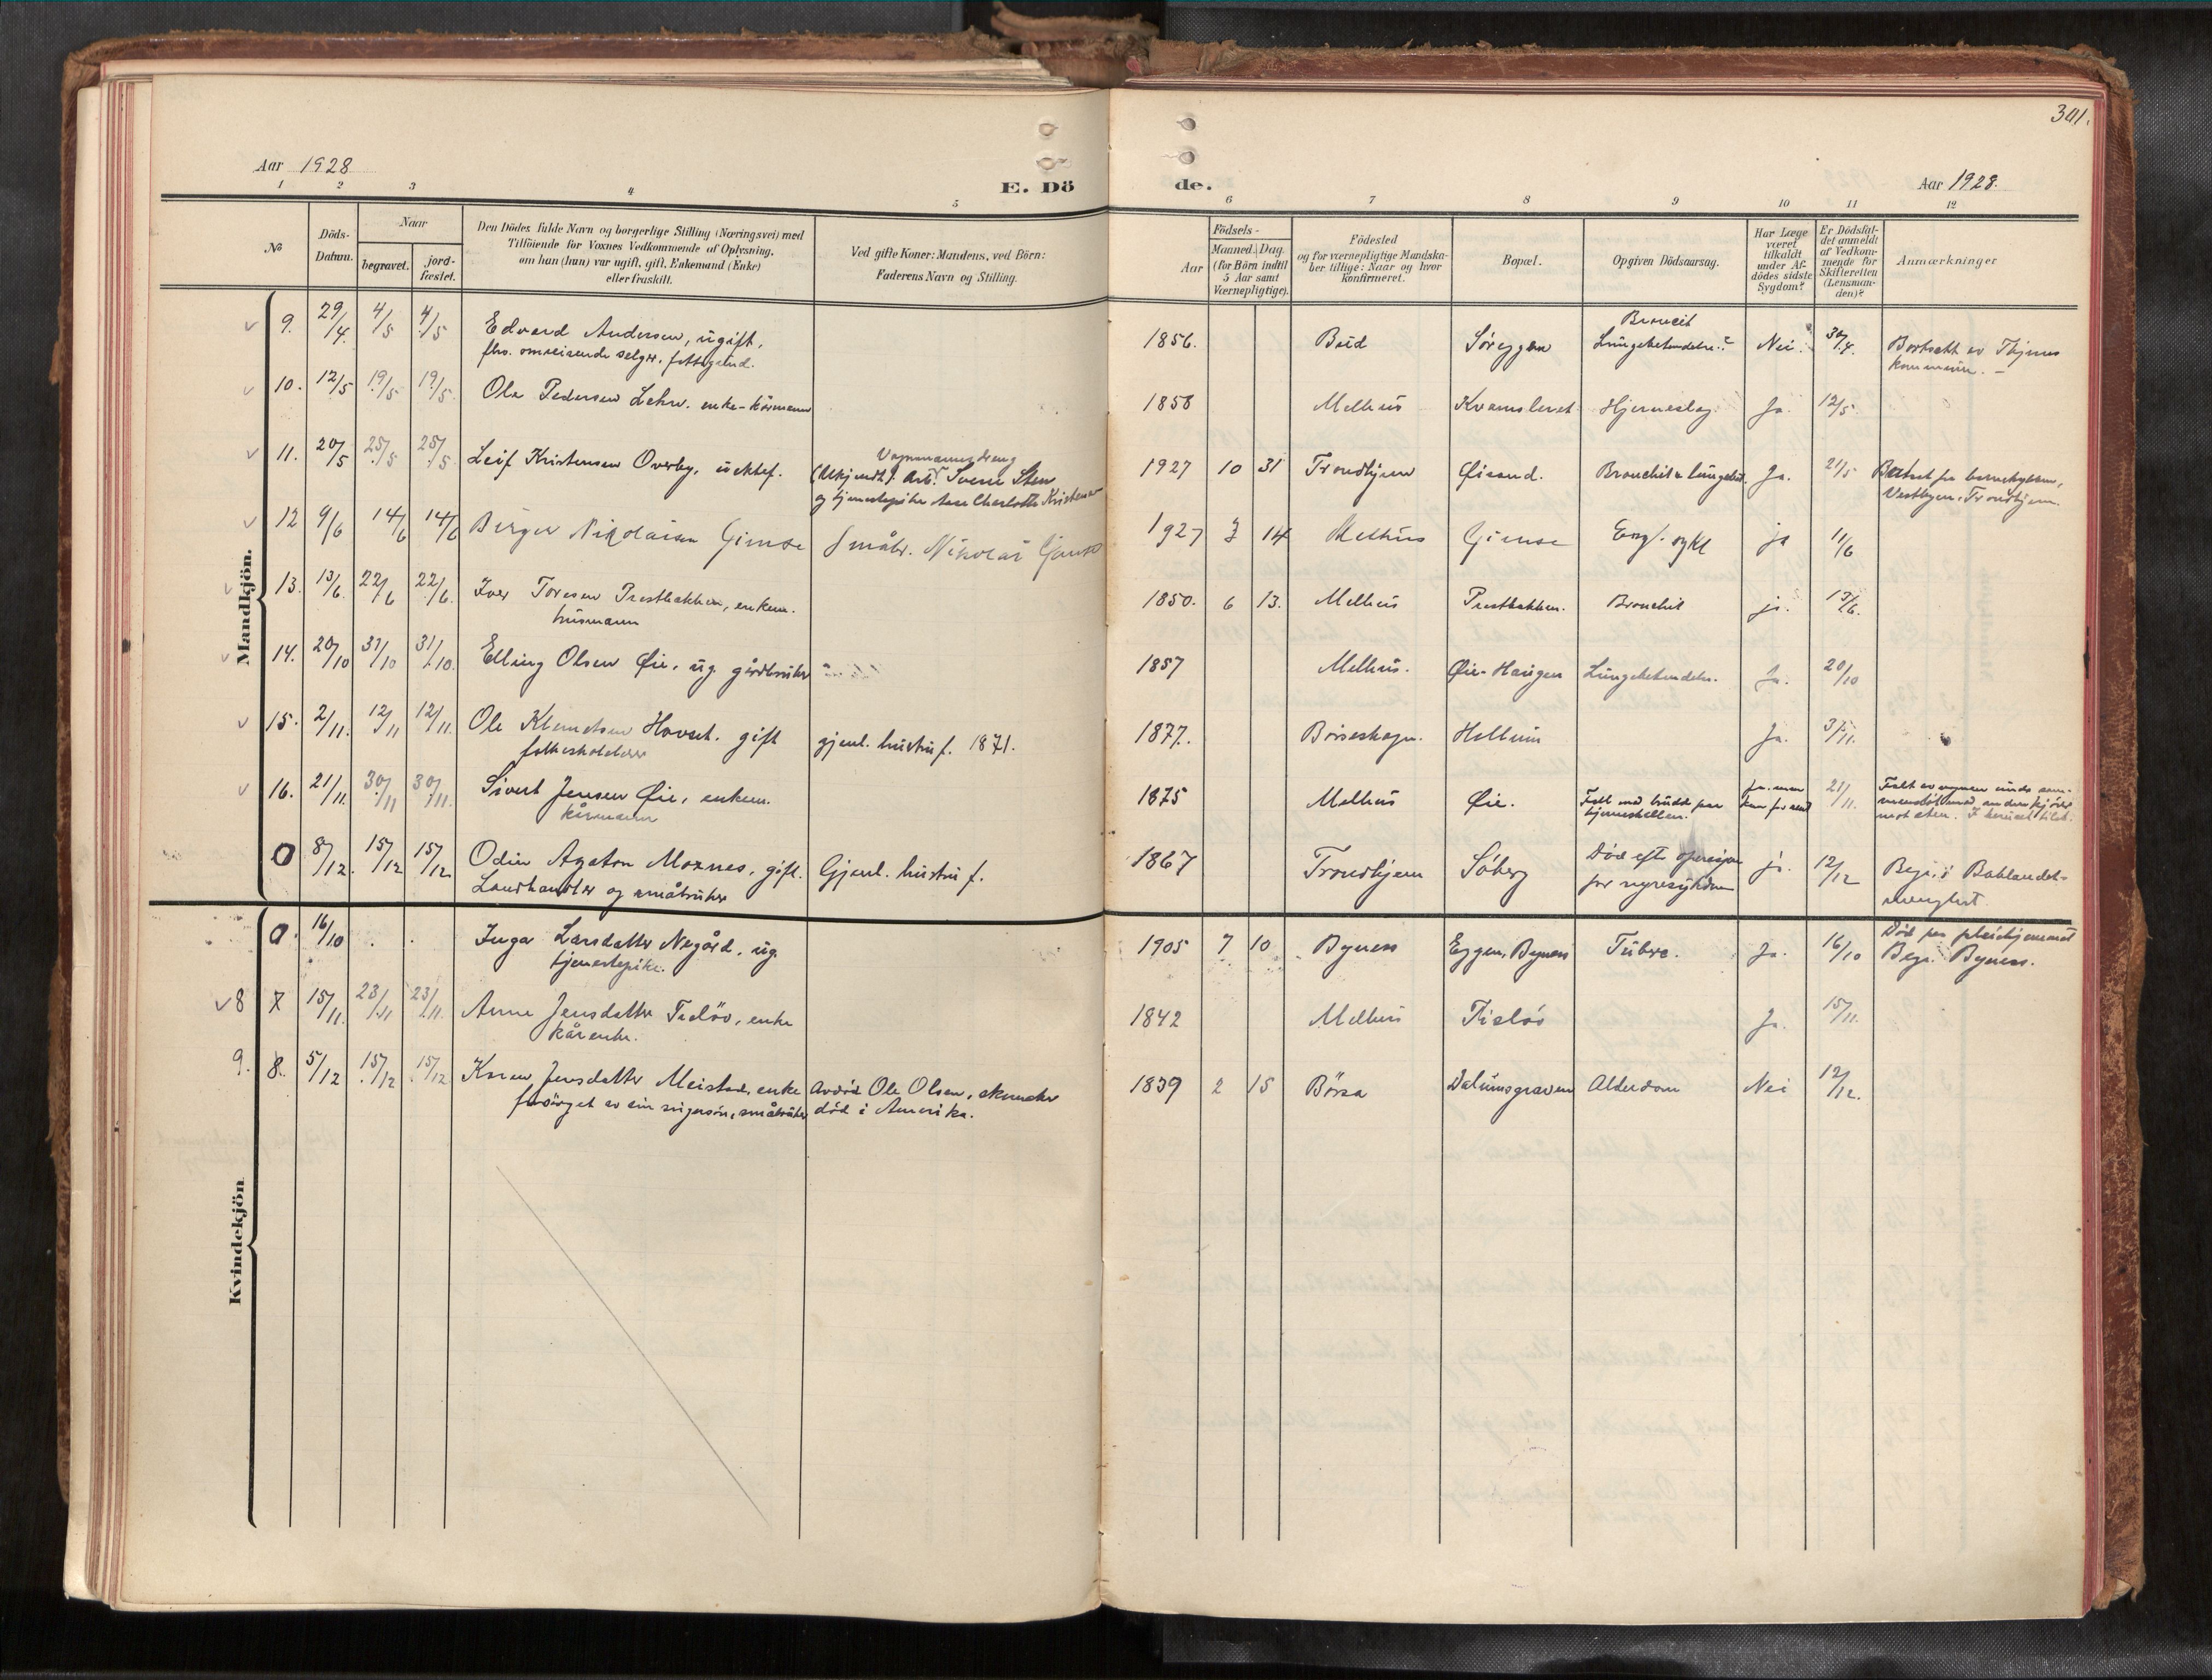 301.
Aar 1928
E. Dö
de.
Aar 1928.
1 2 3 4 5 6 7 8 9 10 11 12
No
Döds-
Datum.
Naar
begravet.
jord-
fæstet.
Den Dödes fulde Navn og borgerlige Stilling (Næringsvei) med
Tilföiende for Voxnes Vedkommende af Oplysning,
om han (hun) var ugift, gift, Enkemand (Enke)
eller fraskilt.
Ved gifte Koner: Mandens, ved Börn:
Faderens Navn og Stilling.
Födsels-
Aar
Maaned.
Dag.
(for Börn indtil
5 Aar samt
Værnepligtige).
Födested
og for værnepligtige Mandska-
ber tillige: Naar og hvor
konfirmeret.
Bopæl.
Opgiven Dödsaarsag.
Har Læge
været
tilkaldt
under Af-
dödes sidste
Sygdom?
Er Dödsfal-
det anmeldt
af Vedkom-
mende for
Skifteretten
(Lensman-
den)?
Anmærkninger
Mandkjön.
9. 29/4. 4/5 4/5 Edvard Andersen, ugift,
fhv. omreisende selger. fattiglind.
1856. Bud Søreggen Broncit
Lungebetendelse? Nei. 30/4. Bortsatt av
kommune. –
10. 12/5 19/5 19/5 Ole Pedersen Lehn. enke-kårmann
1858 Melhus Kvamsleret Hjerneslag. Ja. 12/5
11. 20/5 25/5 25/5 Leif Kristensen Overby, u.ektef.
Vognmannsdreng
(Utkjendt). Arb. Sverre Sten
og tjenestepike Aase Charlotte Kristensen
1927 10 31 Trondhjem Øisand. Bronchit & lungebet. Ja. 21/5
Vestbyen, Trondhjem.
12 9/6 14/6 14/6 Birger Nikolaisen Gimse Småbr. Nikolai Gimse
1927 3 14 Melhus Gimse Eng. sykl ja 11/6
13. 13/6. 22/6 22/6. Iver Toresen Prestbakken, enkem.
husmann
1850. 6 13. Melhus Prestbakken. Bronchit ja. 13/6.
14. 20/10 31/10 31/10. Elling Olsen Øie, ug. gårdbruker
1857 Melhus. Øie-Haugen Lungebetendelse. Ja. 20/10
15. 2/11. 12/11 12/11. Ole Klemetsen Hovset. gift
folkeskolelærer gjenl. hustru f. 1871.
1877. Børseskogn. Hollum Ja. 3/11.
16. 21/11. 30/11 30/11. Sivert Jensen Øie, enkem.
kårmann
1875 Melhus Øie. Fall med brudd paa
hjerneskallen. Ja. men
kom for sent 21/11.
0 8/12. 15/12 15/12 Odin Agaton Moxnes, gift. Gjenl. hustru f.
Landhandler og småbruker
1867 Trondhjem Søberg Død efter operasjon
for nyresykdom ja. 12/12 Begr. i
menighet
Kvindekjön
0. 16/10 . . Inga Larsdatter Negård, ug.
tjenestepike.
1905 7 10 Byness Eggen, Byness Tuberc. Ja. 16/10 Død paa pleiehjemmet
Begr. Byness.
8 7 15/11. 23/11 23/11. Anne Jensdatter Teslöv, enke
kårenke.
1842 Melhus Ja. 15/11.
9. 8. 5/12 15/12 15/12 Karen Jensdatter Meistad, enke Avdöd Ole Olsen, skomaker
forsörget av sin svigersön, småbruker död i Amerika.
1839 2 15 Börsa Dalumsgraven Alderdom Nei 12/12.